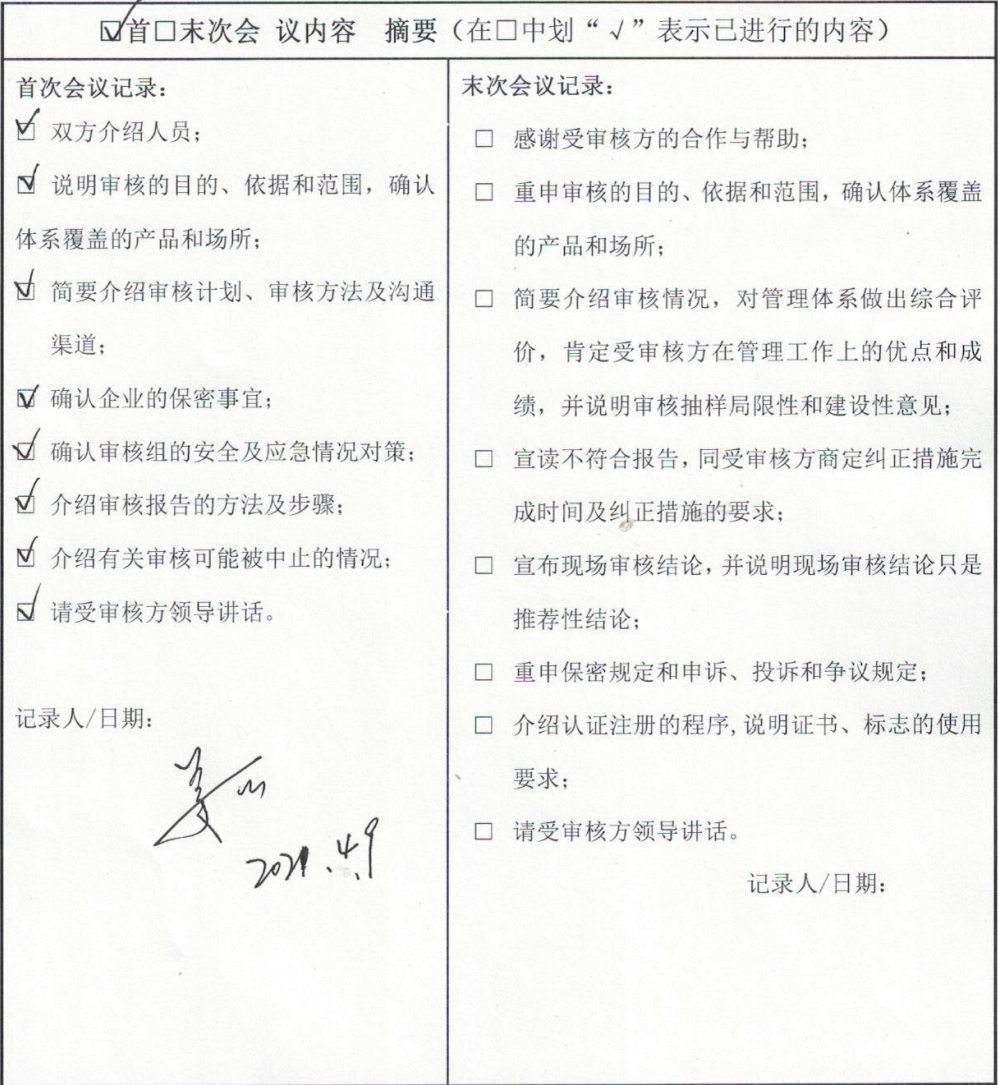 ☑首□末次会 议内容 摘要（在□中划“√”表示已进行的内容）
首次会议记录：
☑ 双方介绍人员；
☑ 说明审核的目的、依据和范围，确认
体系覆盖的产品和场所；
☑ 简要介绍审核计划、审核方法及沟通
渠道；
☑ 确认企业的保密事宜；
☑ 确认审核组的安全及应急情况对策；
☑ 介绍审核报告的方法及步骤；
☑ 介绍有关审核可能被中止的情况；
☑ 请受审核方领导讲话。
记录人/日期：
2021.4.9
末次会议记录：
□ 感谢受审核方的合作与帮助；
□ 重申审核的目的、依据和范围，确认体系覆盖
的产品和场所；
□ 简要介绍审核情况，对管理体系做出综合评
价，肯定受审核方在管理工作上的优点和成
绩，并说明审核抽样局限性和建设性意见；
□ 宣读不符合报告，同受审核方商定纠正措施完
成时间及纠正措施的要求；
□ 宣布现场审核结论，并说明现场审核结论只是
推荐性结论；
□ 重申保密规定和申诉、投诉和争议规定；
□ 介绍认证注册的程序，说明证书、标志的使用
要求；
□ 请受审核方领导讲话。
记录人/日期：